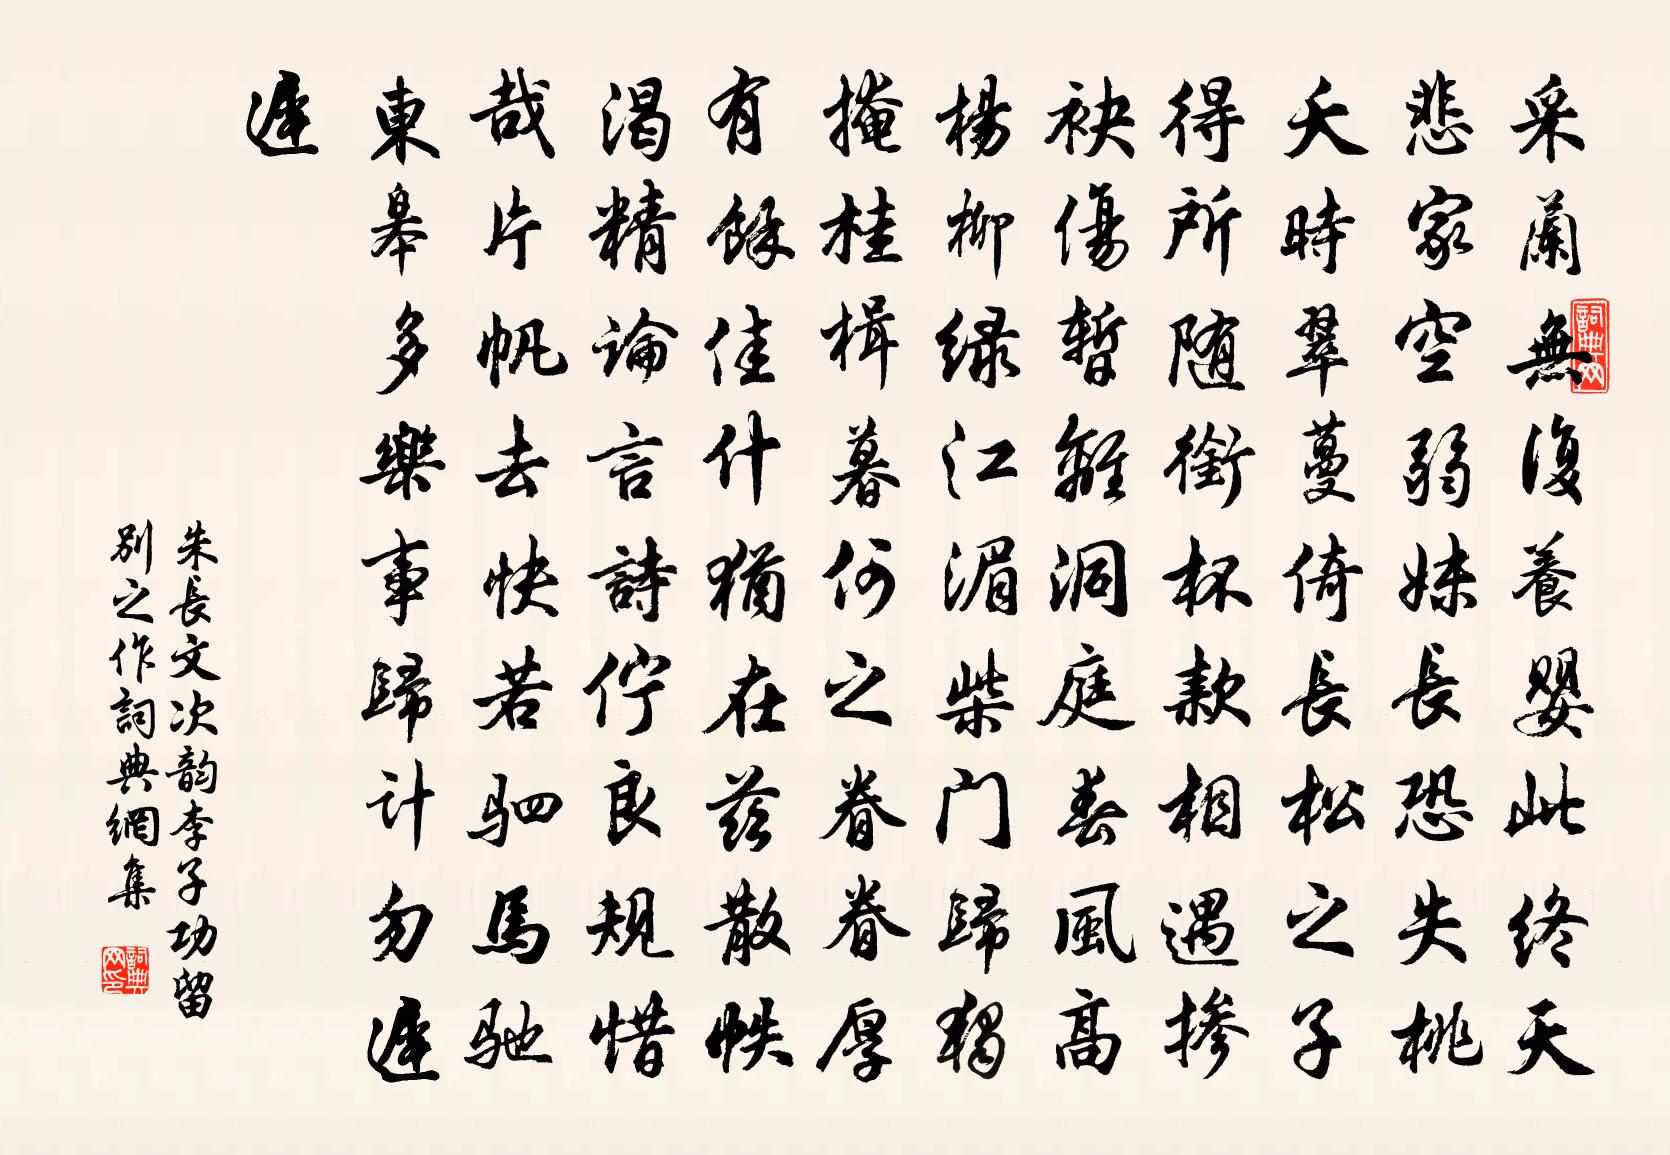 采蘭無復養嬰此終天
悲家空弱妹長恐失桃
夭時翠蔓倚長松之子
得所随銜杯款相遇掺
袂傷暫離洞庭春風高
楊柳绿江湄柴门歸獨
掩桂楫暮何之眷眷厚
有餘佳什猶在兹散帙
渴精論言詩佇良規惜
哉片帆去快若驷馬驰
東皋多樂事歸计勿遲
遲
朱長文次韵李子功留
别之作詞典網集
詞典网
詞典网印